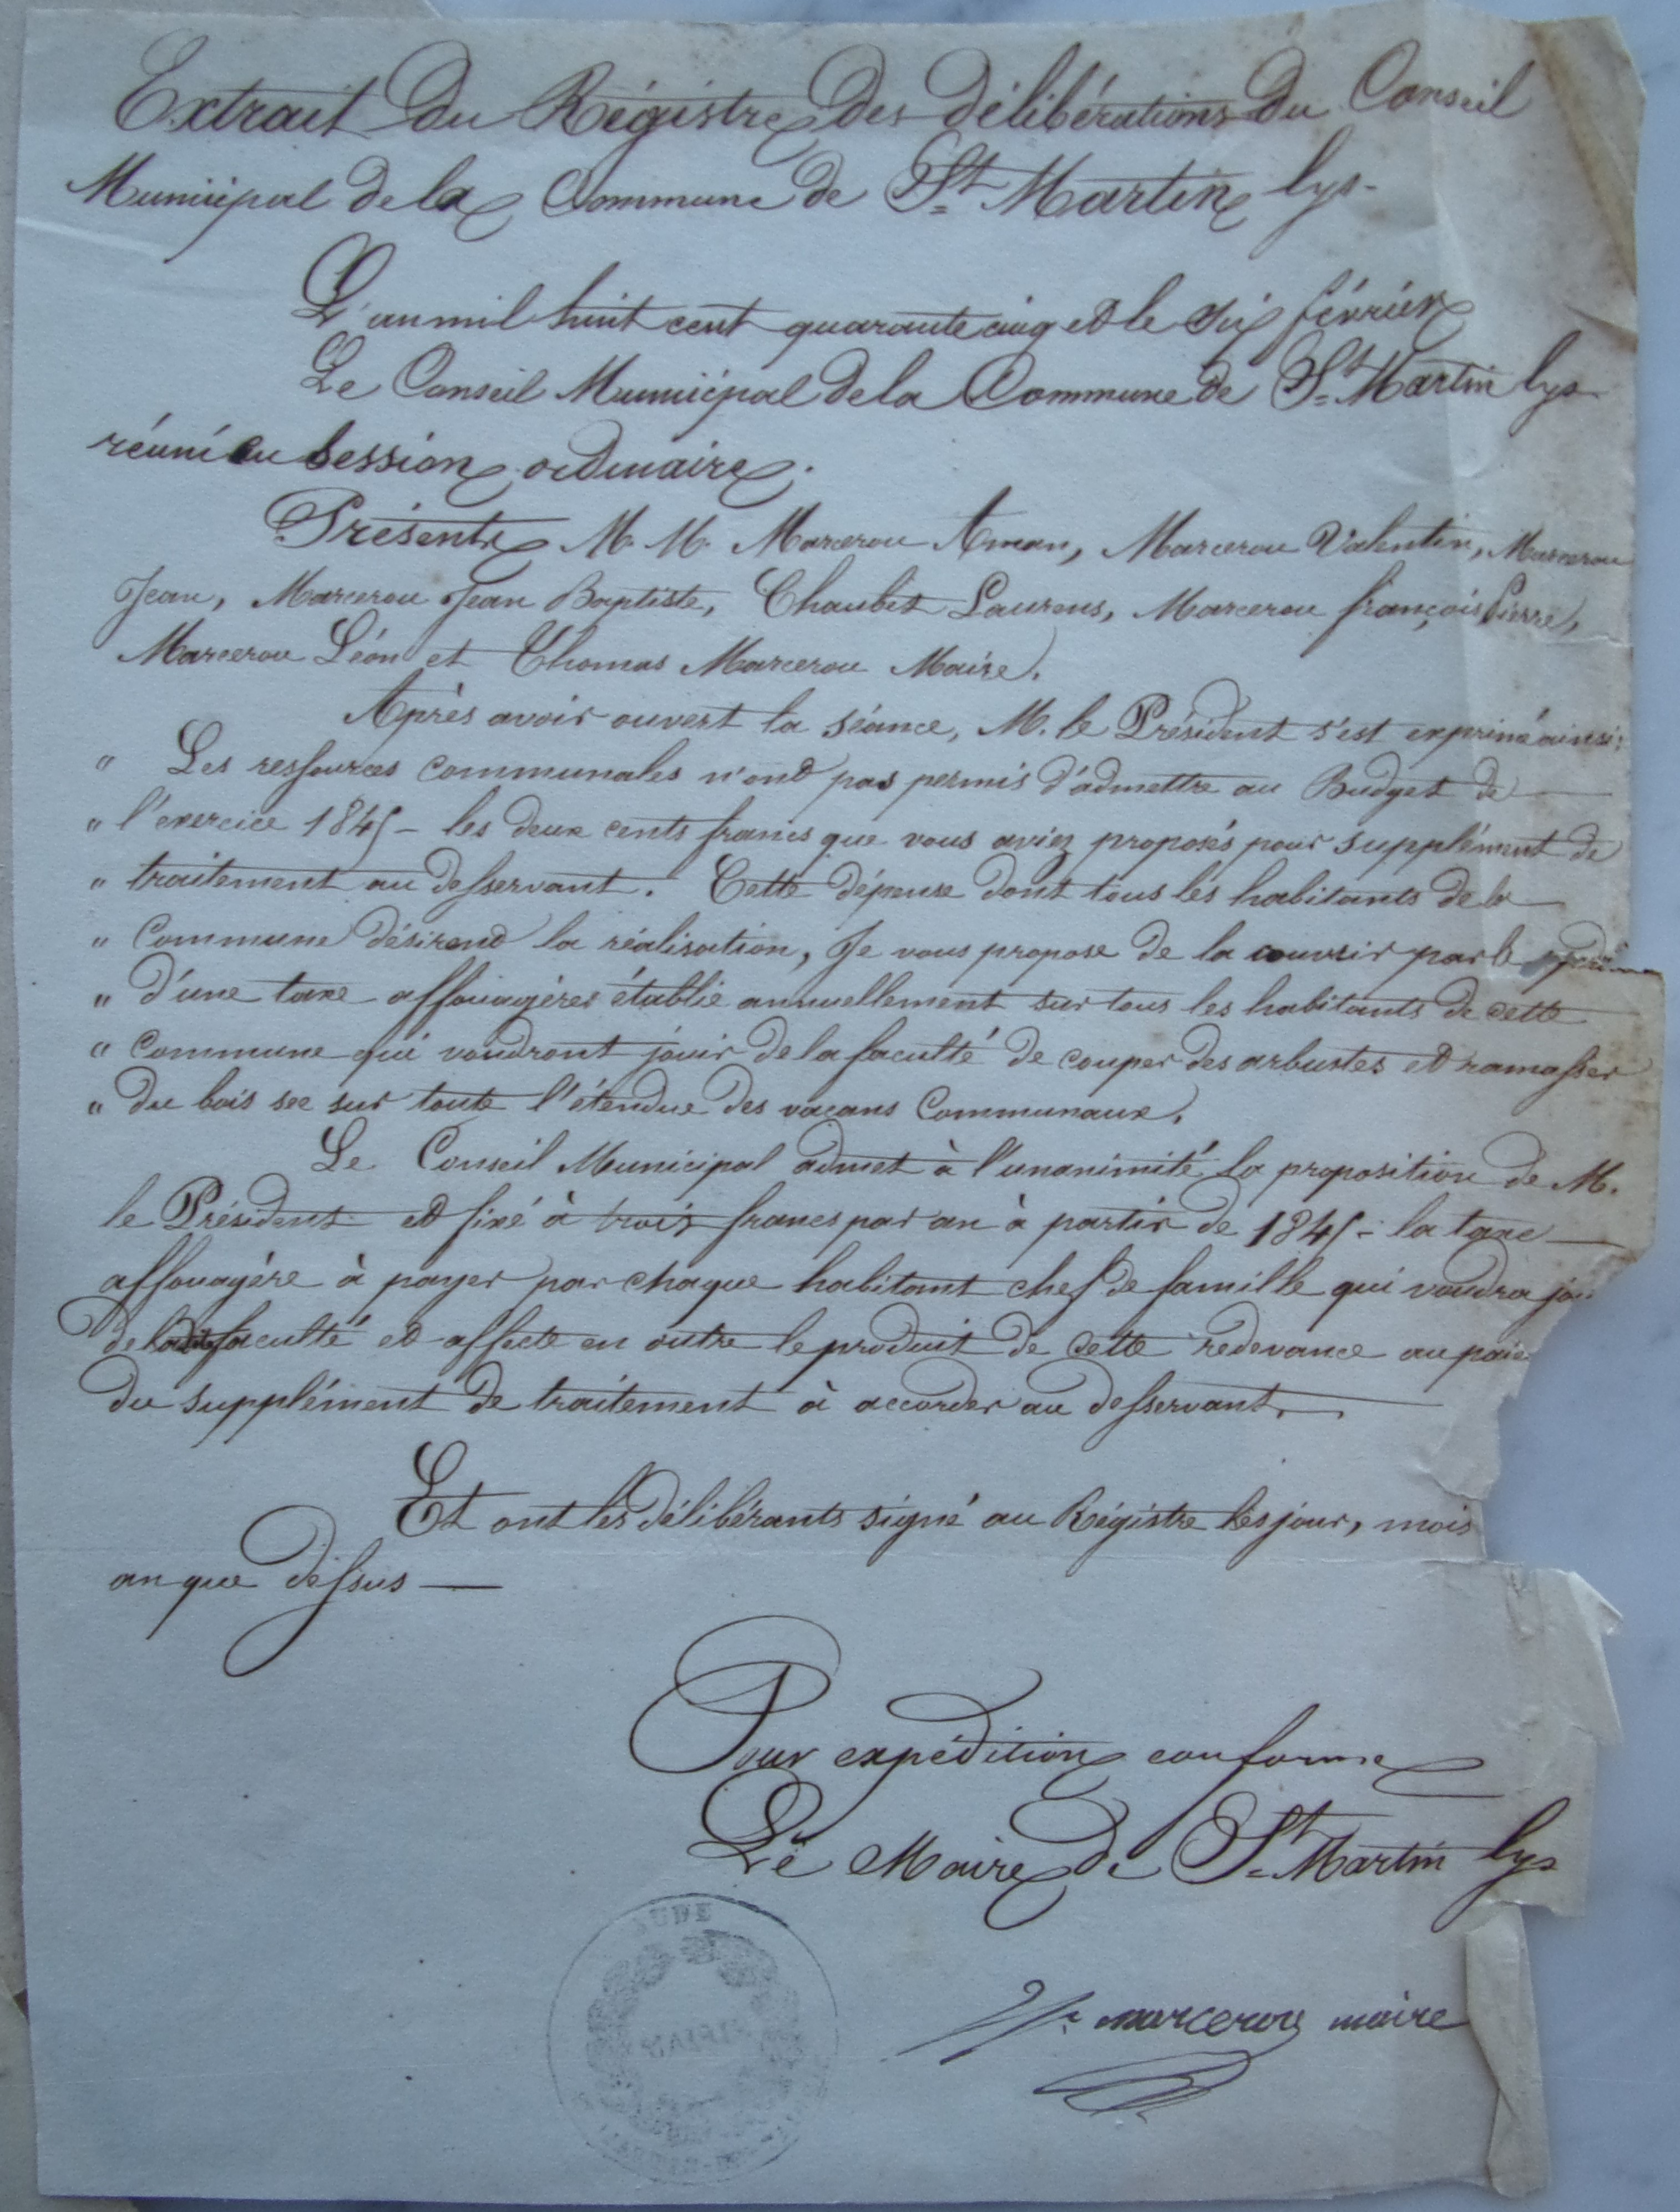 Extrait du Régistre des délibérations du Conseil
Municipal de la Commune de St Martin lys.
L'an mil huit cent quarante cinq et le dix février
Le Conseil Municipal de la Commune de St Martin lys
réuni en session ordinaire.
Présents M. M. Marcerou Aman, Marcerou Valentin, Marcerou
Jean, Marcerou Jean Baptiste, Chaubet Laurens, Marcerou françois Pierre,
Marcerou Léon et Thomas Marcerou Maire.
Après avoir ouvert la séance, M. le Président s'est exprimé ainsi:
" Les ressources communales n'ont pas permis d'admettre au Budget de
" l'exercice 1845 - les deux cents francs que vous aviez proposés pour supplément de
" traitement au desservant. Cette dépense dont tous les habitants de la
" Commune désirent la réalisation, Je vous propose de la couvrir par le
" d'une taxe affouagère établie annuellement sur tous les habitants de cette
" commune qui voudront jouir de la faculté de couper des arbustes et ramasser
" du bois sec sur toute l'étendue des vacans Communaux.
Le Conseil Municipal admet à l'unanimité la proposition de M.
le Président et fixe à trois francs par an à partir de 1845 - la taxe
affouagère à payer par chaque habitant chef de famille qui voudra jou
de ladite faculté et affecte en outre le produit de cette redevance au paie
du supplément de traitement à accorder au desservant.
Et ont les délibérants signé au Régistre les jour, mois
an que dessus
Pour expédition conforme
Le Maire de St Martin lys
marcerou maire
AUDE
MAIRIE